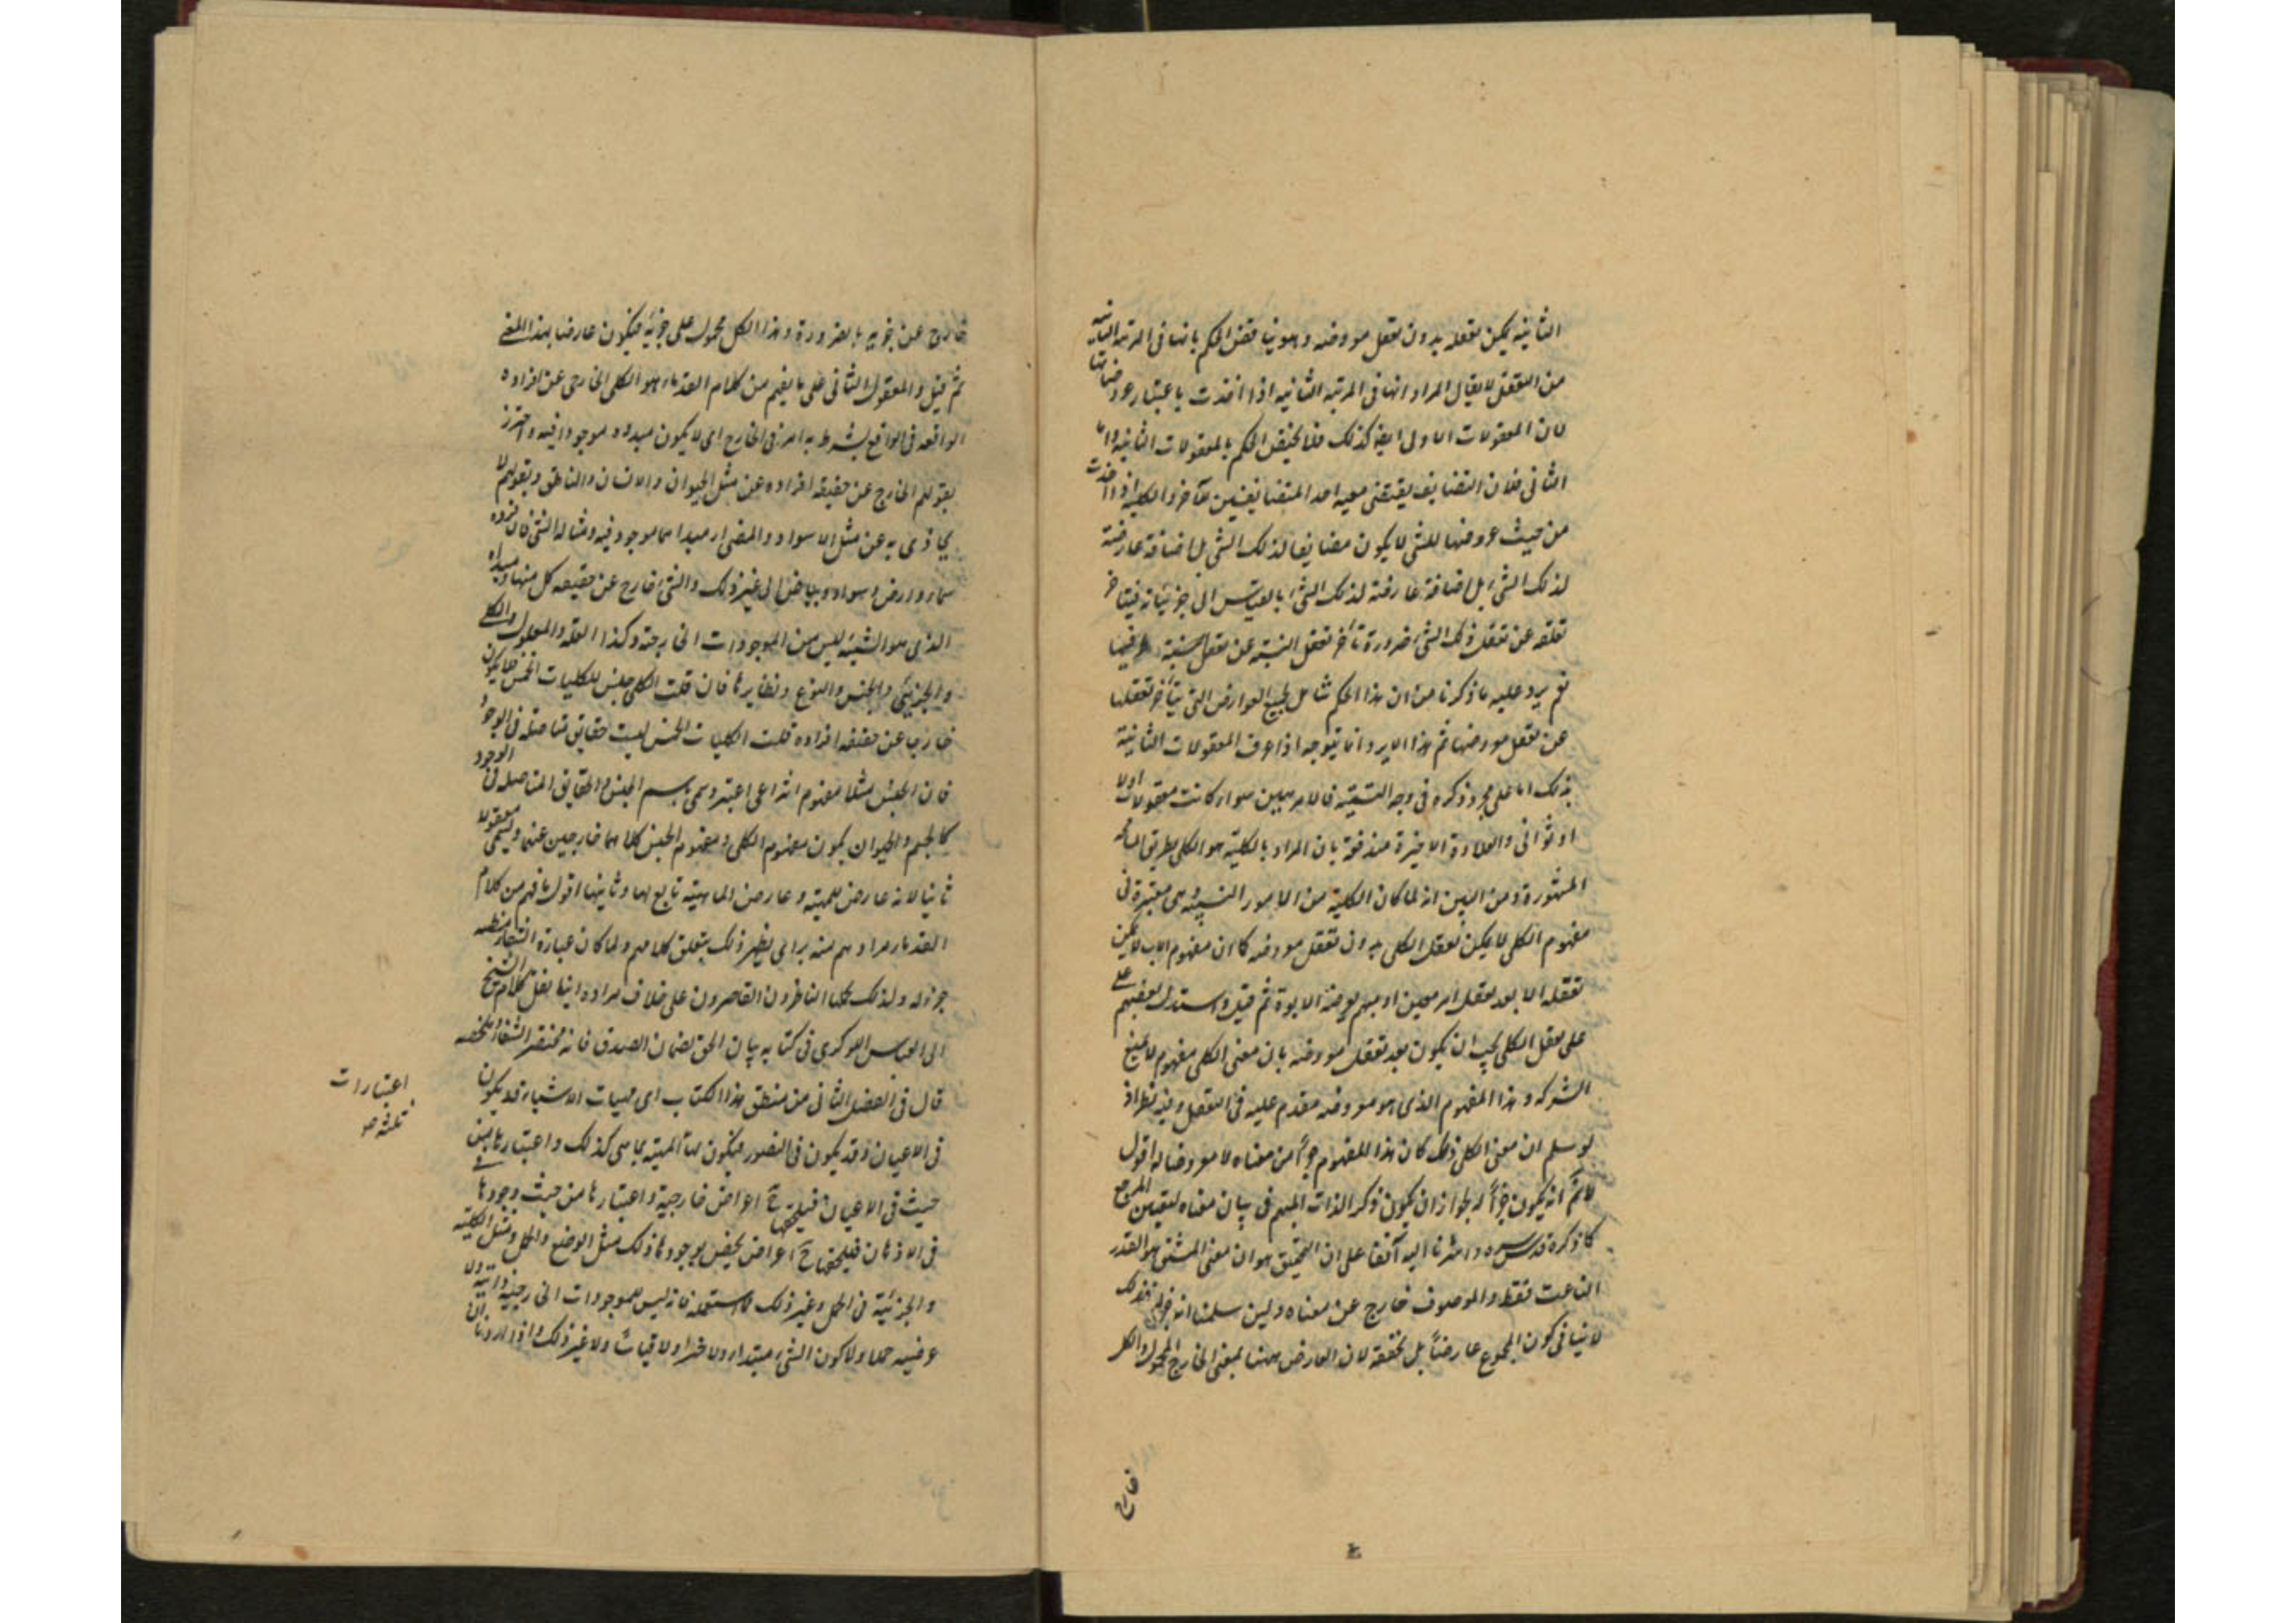 الثانية يمكن تعقله بدون تعقل معروضه وهو يناقض الحكم بانها فى المرتبة الثانية
من التعقل لا يقال المراد انها فى المرتبة الثانية اذا اخذت باعتبار عروضاتها
لان المعقولات الاول ايضا كذلك فلا يختص الحكم بالمعقولات الثانية واما
الثانى فلان التضايف يقتضى معية احد المتضايفين للآخر والكلية اذا اخذت
من حيث عروضها للشئ لا يكون مضايفا لذلك الشئ بل اضافة عارضة
لذلك الشئ بل اضافة عارضة لذلك الشئ بالقياس الى جزئياته فيتأخر
تعقله عن تعقل ذلك الشئ ضرورة تأخر تعقل النسبة عن تعقل
نعم يرد عليه ما ذكرنا من ان هذا الحكم شامل لجميع العوارض التى يتأخر تعقلها
عن تعقل معروضها ثم هذا الايراد انما يتوجه اذا عرف المعقولات الثانية
بذلك اما على مجرد ذكره فى وجه التسمية فالامر هين سواء كانت معقولات اولا
او ثوانى والعلاوة الاخيرة مندفعة بان المراد بالكلية هو الكلى بطريق المسامحة
المشهورة ومن البين انه لما كان الكلية من الامور النسبية وهى معتبرة فى
مفهوم الكلى لا يمكن تعقل الكلى بدون تعقل معروضه كما ان مفهوم الاب لا يمكن
تعقله الا بعد تعقل امر معين او مبهم يعرضه الابوة ثم قيل واستدل بعضهم على
على تعقل الكلى يجب ان يكون بعد تعقل معروضه بان معنى الكلى مفهوم لا يمنع
الشركة وهذا المفهوم الذى هو معروضه مقدم عليه فى التعقل وفيه نظر اذ
لو سلم ان معنى الكلى ذلك كان هذا المفهوم جزأ من معناه لا معروضا له اقول
لا نم انه يكون جزأ له لجواز ان يكون ذكر الذات المبهم فى بيان معناه لتعيين المرجع
كما ذكره قدس سره واشرنا اليه آنفا على ان التحقيق هو ان معنى المشتق هو القدر
الناعت فقط والموصوف خارج عن معناه ولئن سلمنا انه جزء فذلك
لا ينافى كون المجموع عارضاً بل تحققه لان العارض ههنا بمعنى الخارج المحمول والكل
خارج
خارج عن جزئيه بالضرورة وهذا الكل محمول على جزئيه فيكون عارضا بهذا المعنى
ثم قيل والمعقول الثانى على ما يفهم من كلام القدماء هو الكلى الخارجى عن افراده
الواقعة فى الواقع بشرط به امر فى الخارج اى لا يكون مبدؤه موجودا فيه واحترز
بقولهم الخارج عن حقيقة افراده عن مثل الحيوان والانسان والناطق وبقولهم لا
يحاذى به عن مثل الاسود والمضئ اذ مبداهما موجود فيه ومثاله الشئ فان افراده
سماء وارض وسواد وبياض الى غير ذلك والشئ خارج عن حقيقة كل منها ومبداه
الذى هو الشيئية ليس من الموجودات الخارجة وكذا العلة والمعلول والكلى
والجزئى والجنس والنوع ونظايرها فان قلت الكلى جنس للكليات الخمس فلا يكون
خارجا عن حقيقة افراده قلت الكليات الخمس ليست حقايق متاصلة فى الوجود
فان الجنس مثلا مفهوم انتزاعى اعتبر وسمى باسم الجنس والحقايق المتاصلة فى الوجود
كالجسم والحيوان يكون مفهوم الكلى ومفهوم الجنس كلاهما خارجين عنها ويسمى معقولا
ثانيا لانه عارض للمهية وعارض الماهية تابع لها وثانيها اقول ما فهم من كلام
القدماء مرادهم منه برائ يظهر ذلك بتعلق كلامهم ولما كان عبارة الشفاء
جزلة ولذلك حملها الناظرون القاصرون على خلاف مراده اينا بنقل كلام الشيخ
ابى العباس اللوكرى فى كتابه بيان الحق بضمان الصدق فانه مختصر الشفاء وملخصه
قال فى الفصل الثانى من منطق هذا الكتاب اى مهيات الاشياء قد يكون
فى الاعيان وقد يكون فى التصور فيكون لها المهية بما هى كذلك واعتبارها من
حيث فى الاعيان فيلحقها ح اعراض خارجية واعتبارها من حيث وجودها
فى الاذهان فيلحقها ح اعراض يخص بوجودها ذلك مثل الوضع والحمل ومثل الكلية
والجزئية فى الحمل وغير ذلك مما ستعلمه فانه ليس للموجودات الخارجية ذاتية ولا
عرضية حملا ولا كون الشئ مبتداء ولا خبرا ولا قياسا ولا غير ذلك واذا اردنا ان
اعتبارات
ثلثة صو